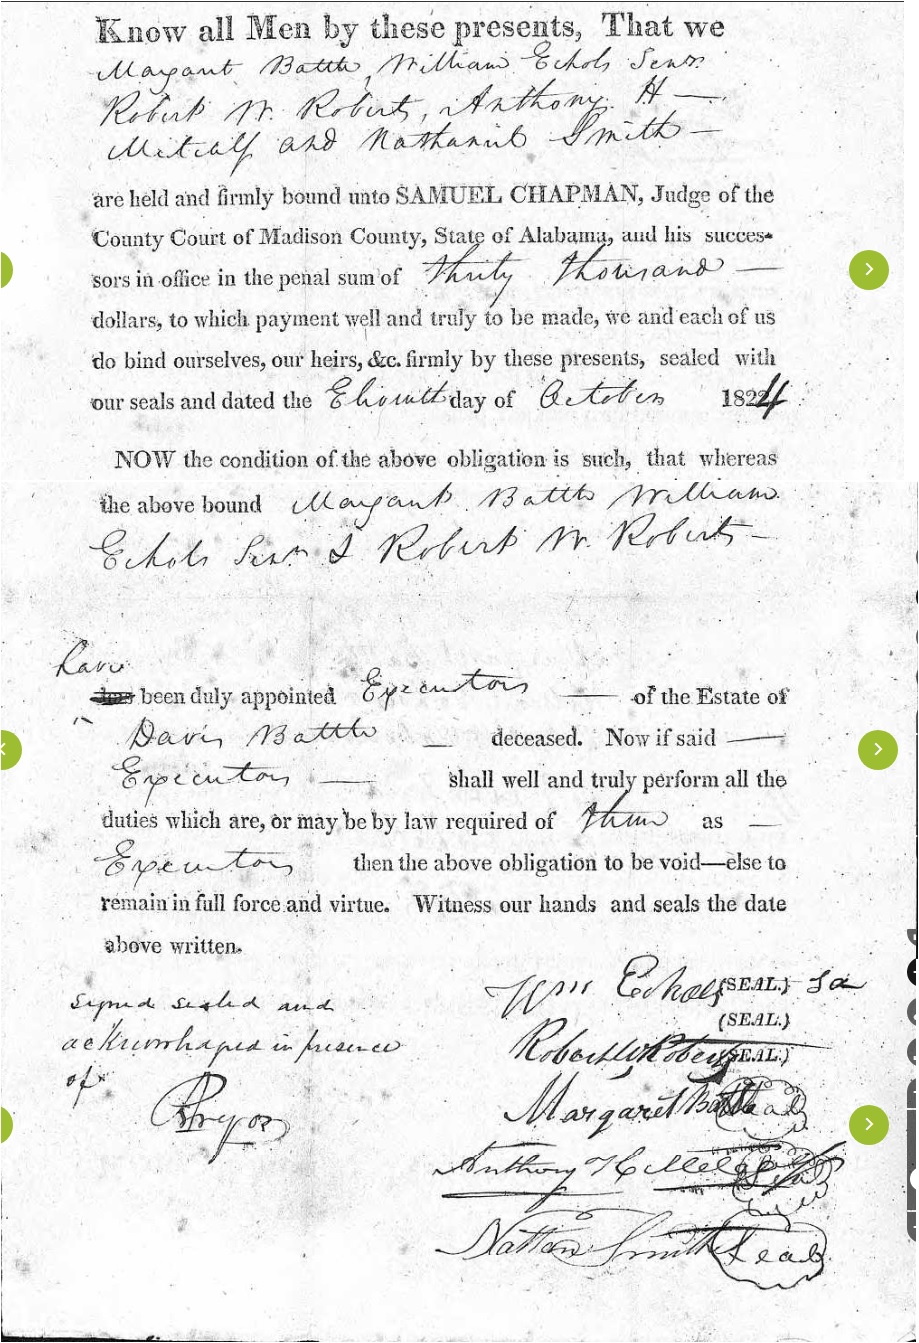 Know all Men by these presents, That we
Margaret Battle, William Echols Senr
Robert W. Roberts, Anthony H —
Metcalf and Nathaniel Smith —
are held and firmly bound unto SAMUEL CHAPMAN, Judge of the
County Court of Madison County, State of Alabama, and his succes-
sors in office in the penal sum of thirty thousand —
dollars, to which payment well and truly to be made, we and each of us
do bind ourselves, our heirs, &c. firmly by these presents, sealed with
our seals and dated the Eleventh day of October 1824
NOW the condition of the above obligation is such, that whereas
the above bound Margaret Battle William
Echols Senr & Robert W. Roberts —
have
has been duly appointed Executors — of the Estate of
Davis Battle — deceased. Now if said —
Executors — shall well and truly perform all the
duties which are, or may be by law required of them as —
Executors then the above obligation to be void—else to
remain in full force and virtue. Witness our hands and seals the date
above written.
signed sealed and
acknowledged in presence
of
Wm Echols (SEAL.)
(SEAL.)
Robert W Roberts (SEAL.)
Margaret Battle Seal
Anthony H Metcalf Seal
Nathan Smith Seal